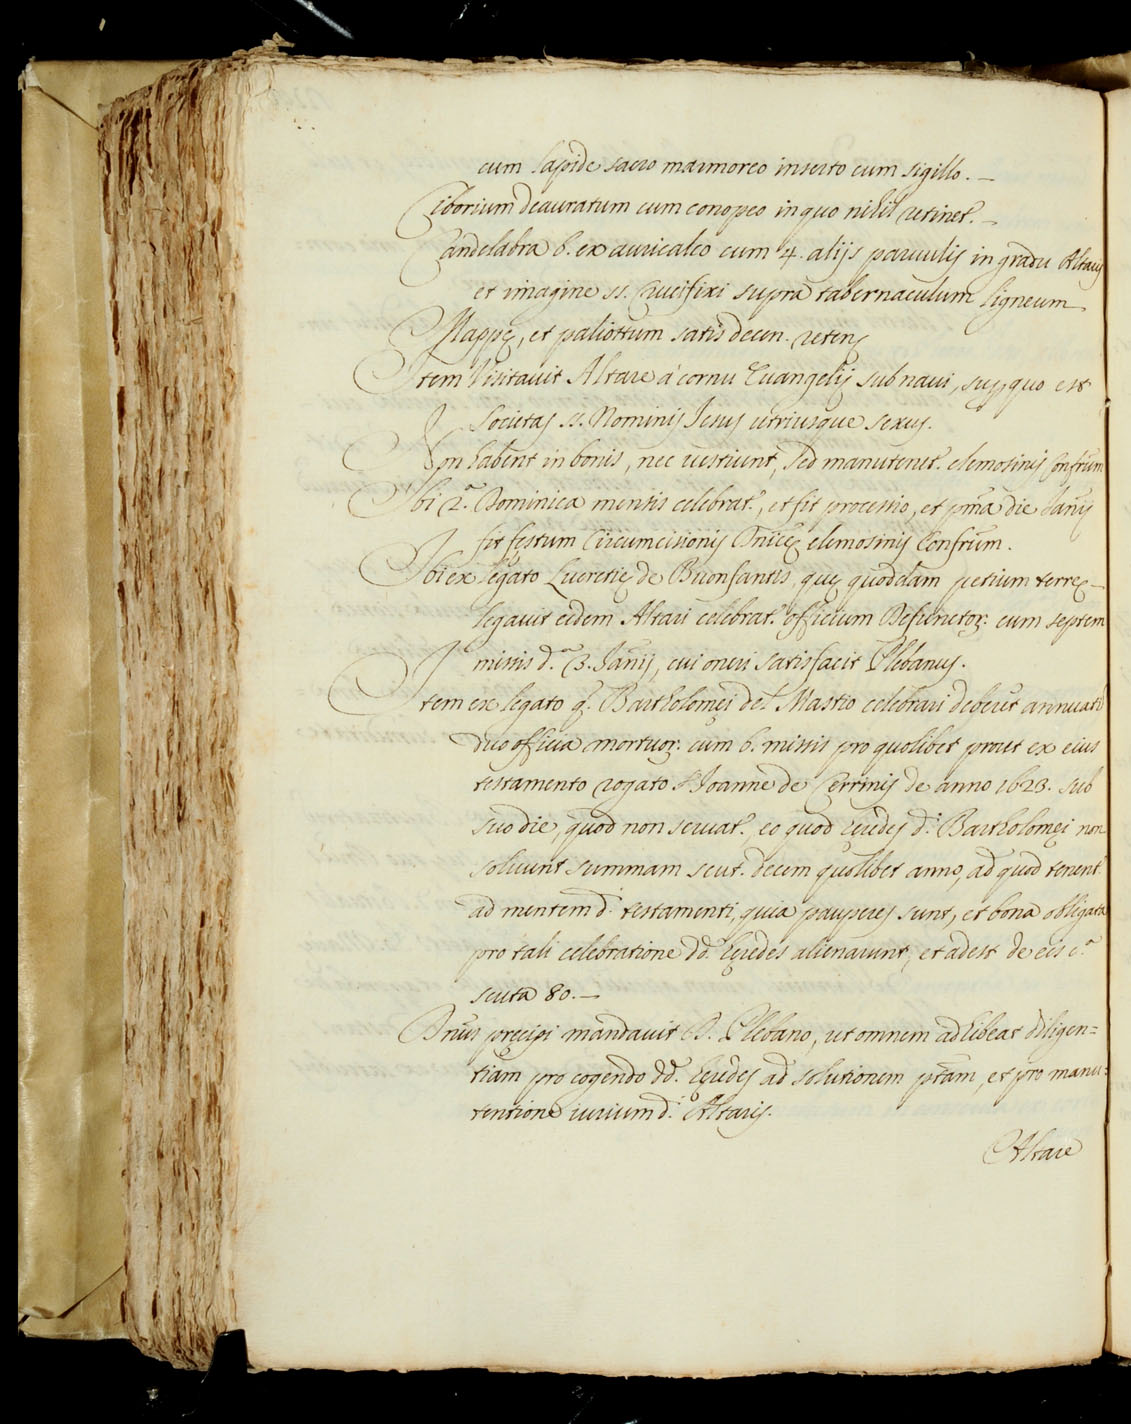 cum lapide sacro marmoreo inserto cum sigillo. –
Ciborium deauratum cum conopeo in quo nihil retinet. –
Candelabra 6. ex auricalco cum 4. alijs paruulis in gradu Altaris
et imagine ss. Crucifixi supra tabernaculum ligneum
Mappę, et paliottum satis decen. retens
Item Visitauit Altare à cornu Euangelij sub naui, sup quo est
Societas ss. Nominis Jesus utriusque sexus.
Non habent in bonis, nec uestiunt, sed manutenet. elemosinis Confrum
Ibi 2.ª Dominica mensis celebrat., et fit processio, et pma die Janij
fit festum Circumcisionis Dnicę elemosinis Confrum.
Ibi ex legato Lucretię de Buonsantis, quę quoddam petium terrę –
legauit eidem Altari celebrat. officium Defunctor: cum septem
missis d.ª 3. Janij, cui oneri satisfacit Plebanus.
Item ex legato q. Bartholomęi del Mastio celebrari deberet annuatī
duo officia mortuor: cum 6. missis pro quolibet prout ex eius
testamento rogato Joanne de Cerrinis de anno 1623. sub
suo die, quod non seruat. eo quod hęredes d.i Bartholomęi non
soluunt summam scut. decem quolibet anno, ad quod tenent.
ad mentem d.i testamenti, quia pauperes sunt, et bona obligata
pro tali celebratione dd. hęredes alienarunt, et adest de eis c.ª
scuta 80. –
Dnus pręcipi mandauit D. Plebano, ut omnem adhibeat diligen=
tiam pro cogendo dd. hęredes ad solutionem ptam, et pro manu=
tentione iurium d.i Altaris.
Altare